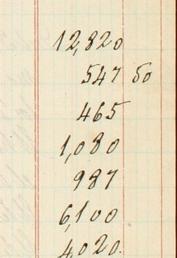 12,820
547 50
465
1,080
987
6,100
4,020.